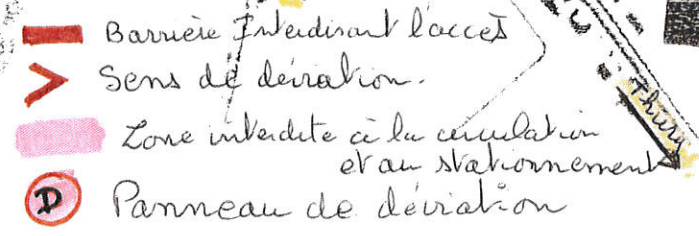 Barrière Interdisant l'accès
Sens de déviation.
Zone interdite à la circulation
et au stationnement
D Panneau de déviation